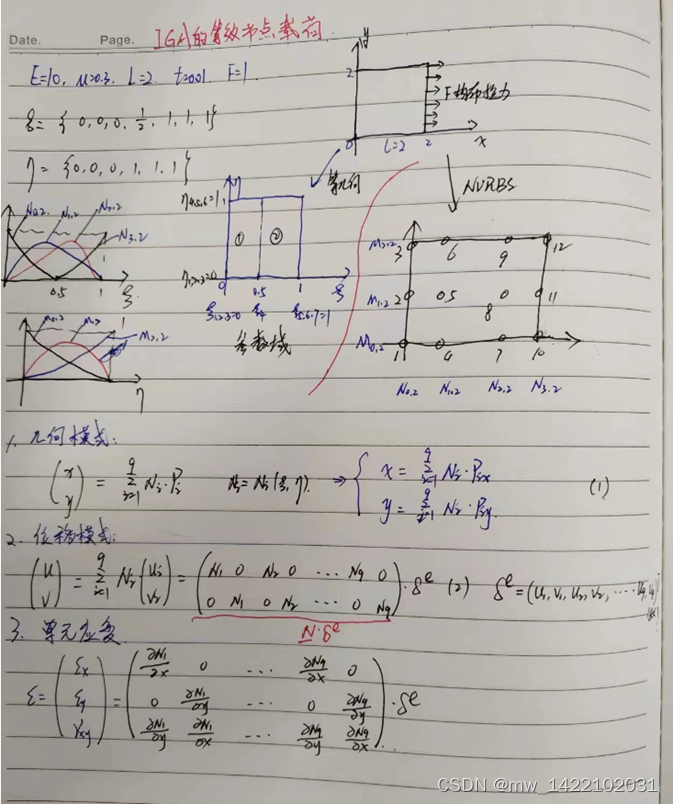 Date.    Page.    IGA的等效节点载荷
E=10, μ=0.3, L=2, t=0.01, F=1
ξ = { 0, 0, 0, 1/2, 1, 1, 1}
η = {0, 0, 0, 1, 1, 1}
y
2
F均布拉力
0    L=2    2    x
等几何
NURBS
N0.2    N1.2    N2.2
N3.2
0.5    1    ξ
η4.5.6=1    η
①    ②
η1.2.3=0
0    0.5    1    ξ
ξ1.2.3=0    ξ4    ξ5.6.7=1
参数域
M2.2    3    6    9    12
M1.2    2    5    8    11
M0.2    1    4    7    10
N0.2    N1.2    N2.2    N3.2
M0.2    M2.2    1
η
1. 几何模式:
(x y) = Σ(i=1→9) Ni·Pi    Ni=Ni(ξ, η).    ⇒    { x = Σ(i=1→9) Ni·Pix
y = Σ(i=1→9) Ni·Piy    (1)
2. 位移模式:
(u v) = Σ(i=1→9) Ni (ui vi) = (N1 0 N2 0 ⋯ N9 0
0 N1 0 N2 ⋯ 0 N9)·δe    (2)    δe=(u1, v1, u2, v2, ⋯ u9, v9)
N·δe
3. 单元应变
ε = (εx εy γxy) = (∂N1/∂x 0 ⋯ ∂N9/∂x 0
0 ∂N1/∂y ⋯ 0 ∂N9/∂y
∂N1/∂y ∂N1/∂x ⋯ ∂N9/∂y ∂N9/∂x)·δe
CSDN @mw_1422102031